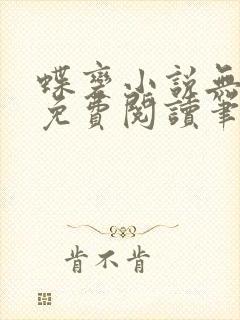 蝶變小說無
免費閱讀筆
肯不肯